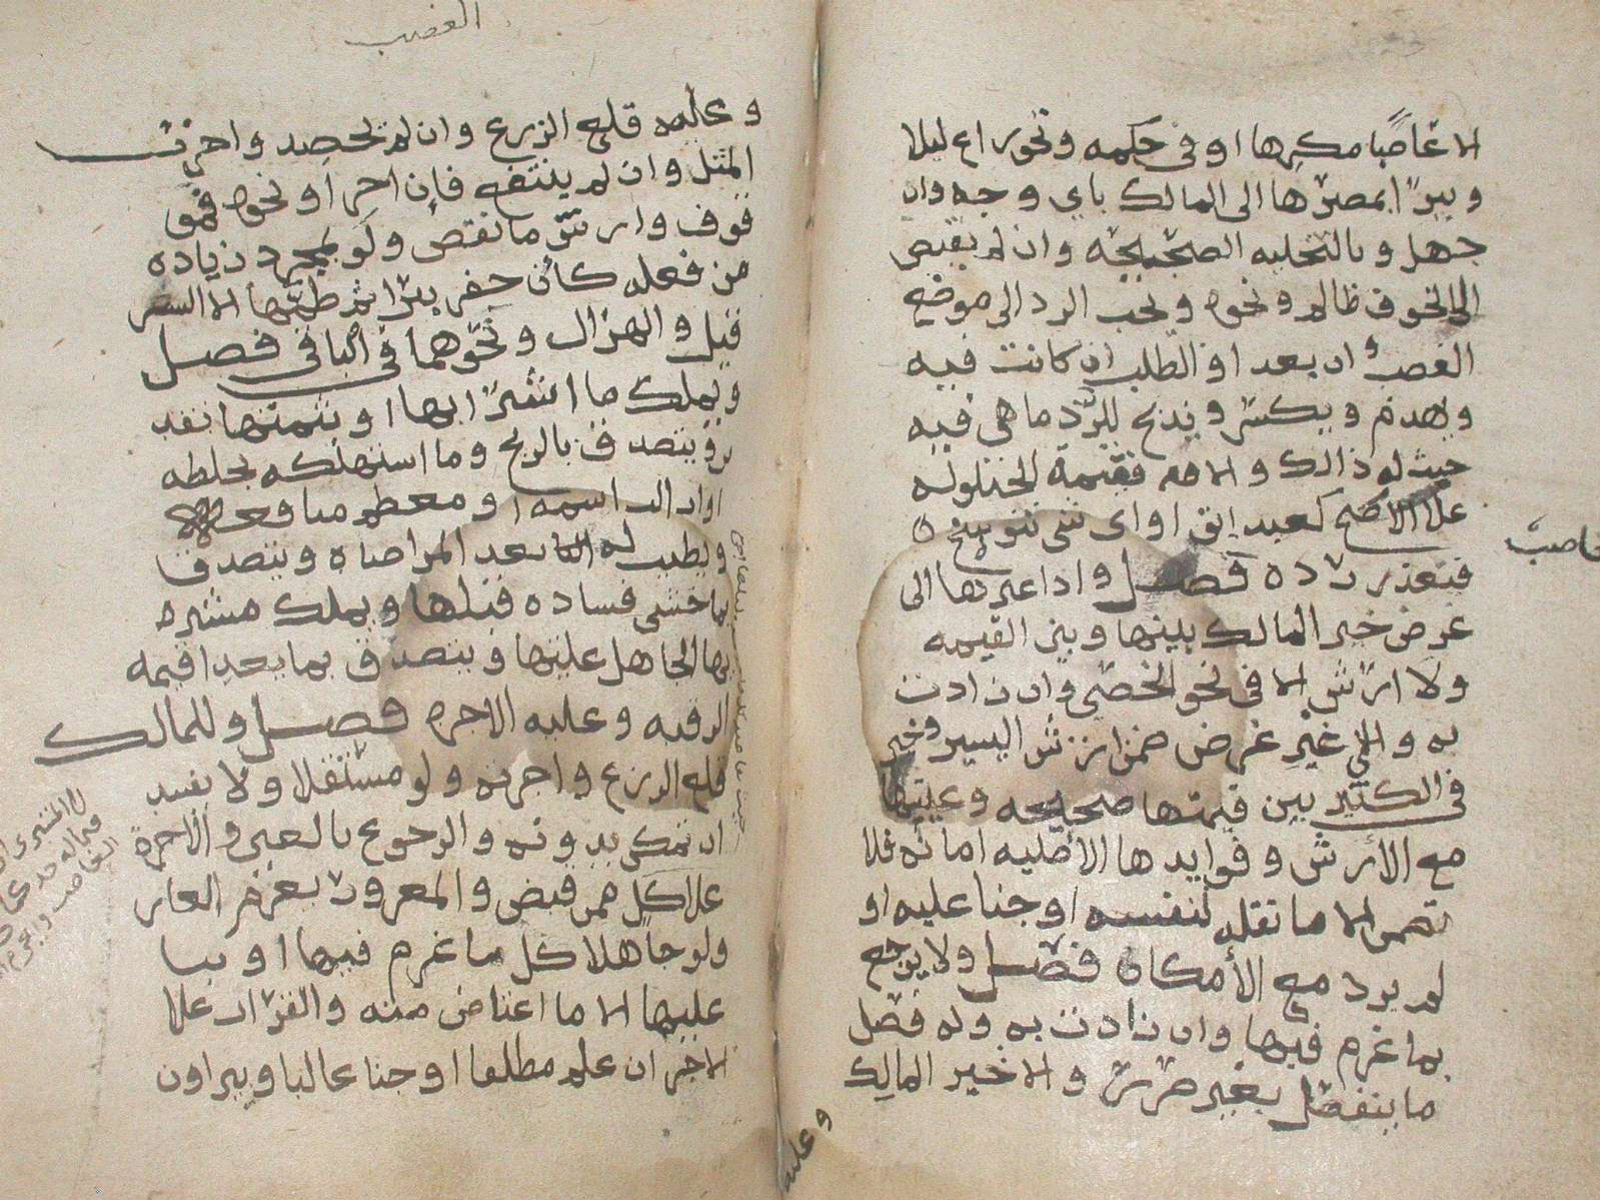 الا غاصبًا مكرها او في حكمه ونحو راع ليلا
ويبرا بمصيرها الى المالك باي وجه وان
جهل وبالتخليه الصحيحه وان لم يقبض
الا لخوف ظالم ونحوه ويجب الرد الى موضع
الغصب وان بعد او الطلب ان كانت فيه
ويهدم ويكسر ويذبح للرد ما هي فيه
حيث له ذالك والا فقيمة الحيلوله
علا الاصح كعبد ابق او اي شي تنوسخ
فتعذر رده فصل واذا غيرها الى
غرض خير المالك بينها وبين القيمه
ولا ارش الا في نحو الخصي وان زادت
به والى غير غرض ضمن ارش اليسير وخير
في الكثير بين قيمتها صحيحه وعينها
مع الأرش وفوايدها الأصليه امانه فلا
تضمن الا ما نقله لنفسه او جنا عليه او
لم يرد مع الأمكان فصل ولا يرجع
بما غرم فيها وان زادت به وله فصل
ما ينفصل بغير ضرر والا خير المالك
وعليه
غاصب
الغصب
وعليه قلع الزرع وان لم يحصد واجرة
المثل وان لم ينتفع فإن اجر او نحوه فموقوف
وارش ما نقص ولو بمجرد زياده
من فعله كأن حفر بيرا ثم طمها الا السعر
قيل والهزال ونحوهما في الباقي فصل
ويملك ما اشترا بها او بثمنها نقدين
ويتصدق بالربح وما استهلكه بخلطه
او ازالة اسمه ومعظم منافعه
ويطيب له بعد المراضاه ويتصدق
بما خشي فساده قبلها ويملك مشتريها
الجاهل غلتها ويتصدق بما بعدا قيمه
الرقبه وعليه الاجره فصل وللمالك
قلع الزرع واجرته ولو مستقلا ولا يفسد
ان تمكن بدونه والرجوع بالعين والأجرة
علا كل ممن قبض والمغرور يغرم الغار
ولو جاهلا كل ما غرم فيها او بنا
عليها الا ما اعتاض منه والقرار علا
الاخر ان علم مطلقا او جنا غالبا ويبراون